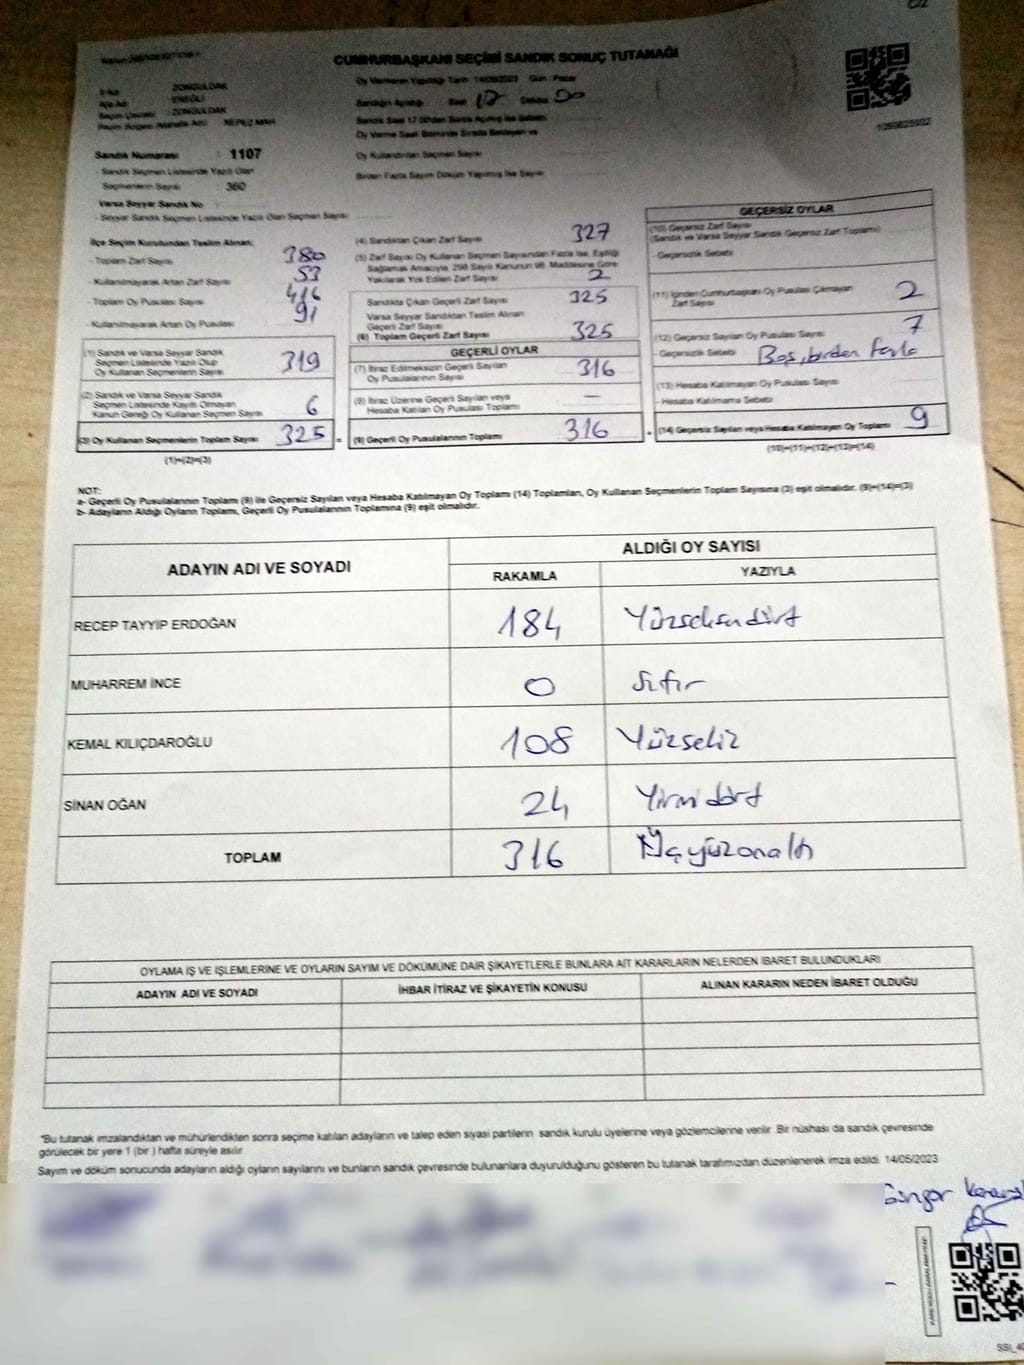 CUMHURBAŞKANI SEÇİMİ SANDIK SONUÇ TUTANAĞI
Oy Vermenin Yapıldığı Tarih : 14/05/2023 Gün : Pazar
İl Adı : ZONGULDAK
İlçe Adı : EREĞLİ
Seçim Çevresi : ZONGULDAK
Sandığın Açıldığı Saat 17 Dakika 00
Sandık Saat 17:00'den Sonra Açılmış İse Sebebi
Oy Verme Saati Bitiminde Sırada Bekleyen ve
Oy Kullandırılan Seçmen Sayısı
Birden Fazla Sayım Döküm Yapılmış İse Sayısı
Sandık Numarası : 1107
- Sandık Seçmen Listesinde Yazılı Olan
Seçmenlerin Sayısı : 360
Varsa Seyyar Sandık No
- Seyyar Sandık Seçmen Listesinde Yazılı Olan Seçmen Sayısı
İlçe Seçim Kurulundan Teslim Alınan;
- Toplam Zarf Sayısı 380
- Kullanılmayarak Artan Zarf Sayısı 53
- Toplam Oy Pusulası Sayısı 416
- Kullanılmayarak Artan Oy Pusulası 91
(1) Sandık ve Varsa Seyyar Sandık
Seçmen Listesinde Yazılı Olup
Oy Kullanan Seçmenlerin Sayısı 319
(2) Sandık ve Varsa Seyyar Sandık
Seçmen Listesinde Kayıtlı Olmayan
Kanun Gereği Oy Kullanan Seçmen Sayısı 6
(3) Oy Kullanan Seçmenlerin Toplam Sayısı 325 =
(1)+(2)=(3)
(4) Sandıktan Çıkan Zarf Sayısı 327
(5) Zarf Sayısı Oy Kullanan Seçmen Sayısından Fazla İse, Eşitliği
Sağlamak Amacıyla, 298 Sayılı Kanunun 98. Maddesine Göre
Yakılarak Yok Edilen Zarf Sayısı 2
Sandıkta Çıkan Geçerli Zarf Sayısı 325
Varsa Seyyar Sandıktan Teslim Alınan
Geçerli Zarf Sayısı
(6) Toplam Geçerli Zarf Sayısı 325
GEÇERLİ OYLAR
(7) İtiraz Edilmeksizin Geçerli Sayılan
Oy Pusulalarının Sayısı 316
(8) İtiraz Üzerine Geçerli Sayılan veya
Hesaba Katılan Oy Pusulası Toplamı —
(9) Geçerli Oy Pusulalarının Toplamı 316 +
GEÇERSİZ OYLAR
(10) Geçersiz Zarf Sayısı
(Sandık ve Varsa Seyyar Sandık Geçersiz Zarf Toplamı)
- Geçersizlik Sebebi
(11) İçinden Cumhurbaşkanı Oy Pusulası Çıkmayan
Zarf Sayısı 2
(12) Geçersiz Sayılan Oy Pusulası Sayısı 7
Geçersizlik Sebebi Boş, birden fazla
(13) Hesaba Katılmayan Oy Pusulası Sayısı
- Hesaba Katılmama Sebebi
(14) Geçersiz Sayılan veya Hesaba Katılmayan Oy Toplamı 9
(10)+(11)+(12)+(13)=(14)
NOT:
a- Geçerli Oy Pusulalarının Toplamı (9) ile Geçersiz Sayılan veya Hesaba Katılmayan Oy Toplamı (14) Toplamları, Oy Kullanan Seçmenlerin Toplam Sayısına (3) eşit olmalıdır. (9)+(14)=(3)
b- Adayların Aldığı Oyların Toplamı, Geçerli Oy Pusulalarının Toplamına (9) eşit olmalıdır.
ADAYIN ADI VE SOYADI ALDIĞI OY SAYISI
RAKAMLA YAZIYLA
RECEP TAYYİP ERDOĞAN 184 Yüzseksendört
MUHARREM İNCE 0 Sıfır
KEMAL KILIÇDAROĞLU 108 Yüzsekiz
SİNAN OĞAN 24 Yirmidört
TOPLAM 316 Üçyüzonaltı
OYLAMA İŞ VE İŞLEMLERİNE VE OYLARIN SAYIM VE DÖKÜMÜNE DAİR ŞİKAYETLERLE BUNLARA AİT KARARLARIN NELERDEN İBARET BULUNDUKLARI
ADAYIN ADI VE SOYADI İHBAR İTİRAZ VE ŞİKAYETİN KONUSU ALINAN KARARIN NEDEN İBARET OLDUĞU
"Bu tutanak imzalandıktan ve mühürlendikten sonra seçime katılan adayların ve talep eden siyasi partilerin sandık kurulu üyelerine veya gözlemcilerine verilir. Bir nüshası da sandık çevresinde
görülecek bir yere 1 (bir ) hafta süreyle asılır.
Sayım ve döküm sonucunda adayların aldığı oyların sayılarını ve bunların sandık çevresinde bulunanlara duyurulduğunu gösteren bu tutanak tarafımızdan düzenlenerek imza edildi. 14/05/2023